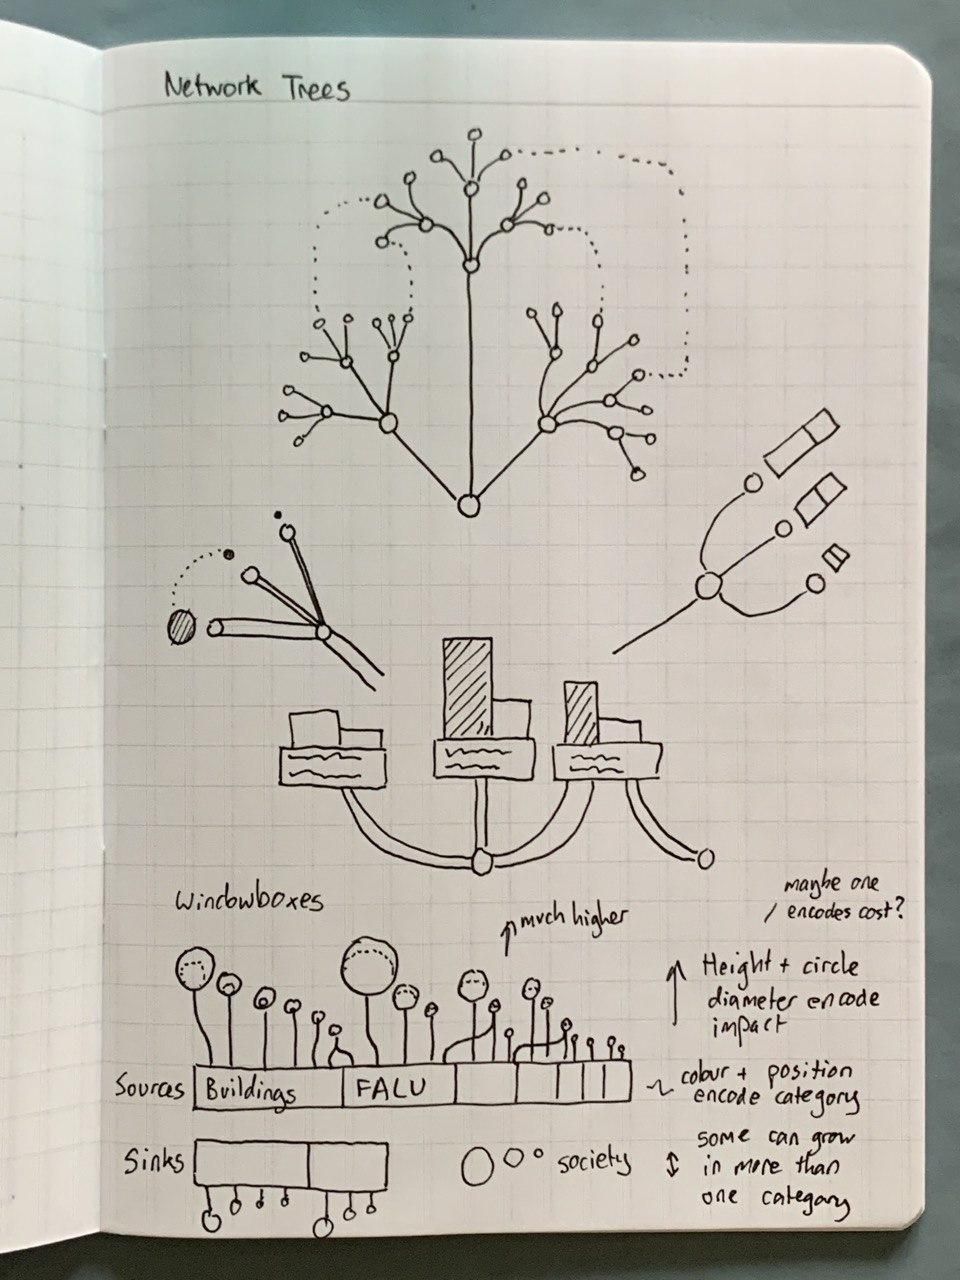 Network Trees
Windowboxes
maybe one
encodes cost?
much higher
Height + circle
diameter encode
impact
Sources
Buildings
FALU
colour + position
encode category
Sinks
society
some can grow
in more than
one category